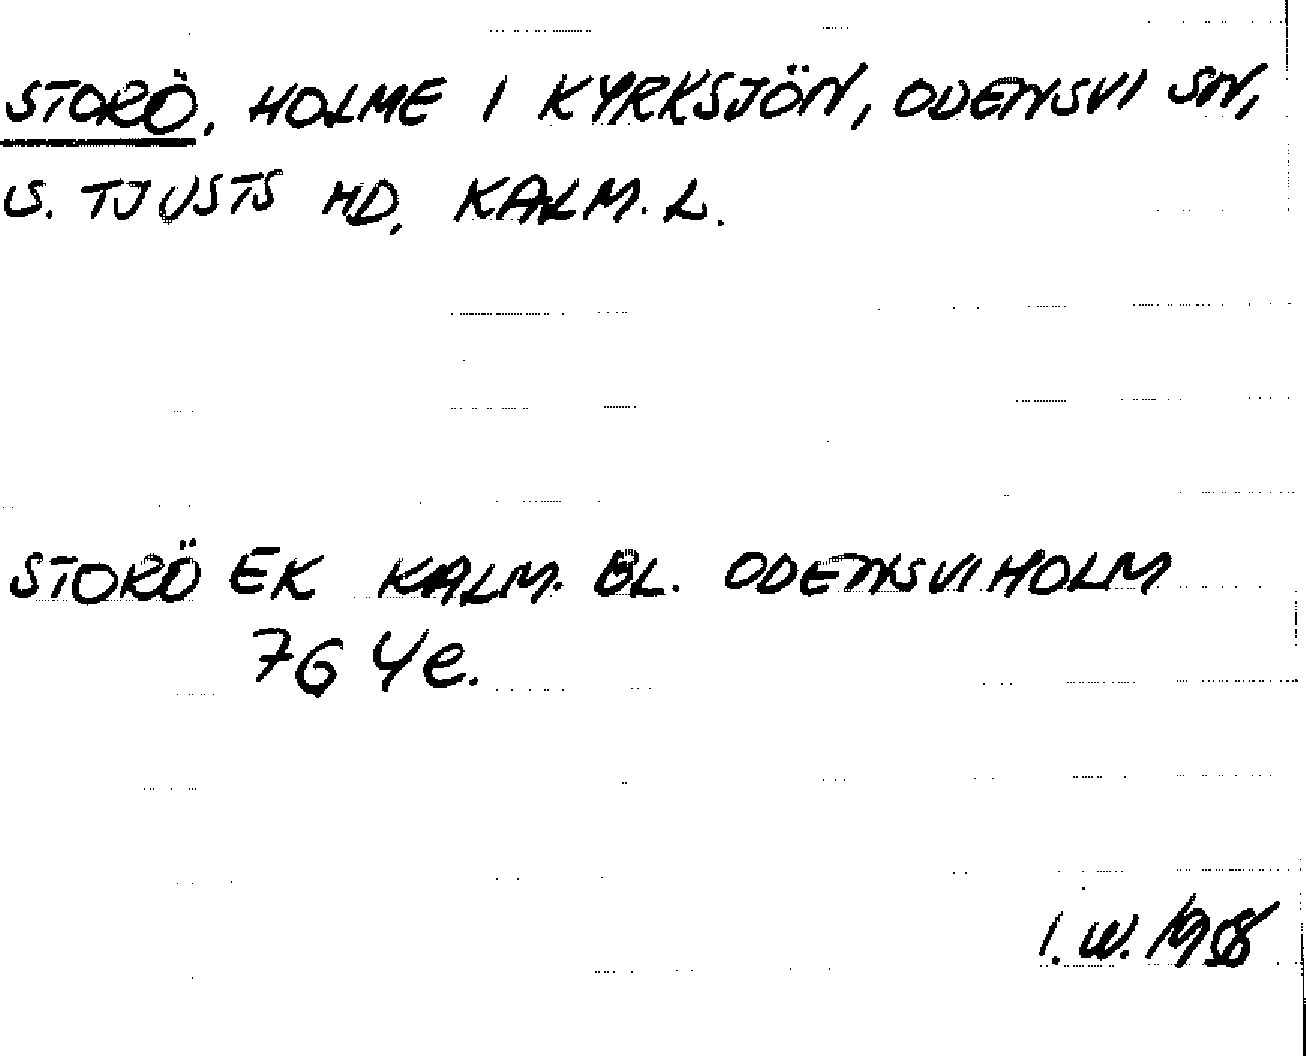 STORÖ, HOLME I KYRKSJÖN, ODENSVI SN,
S. TJUSTS HD, KALM. L.
STORÖ EK KALM. BL. ODENSVIHOLM
7G 4e.
I. W. 1958